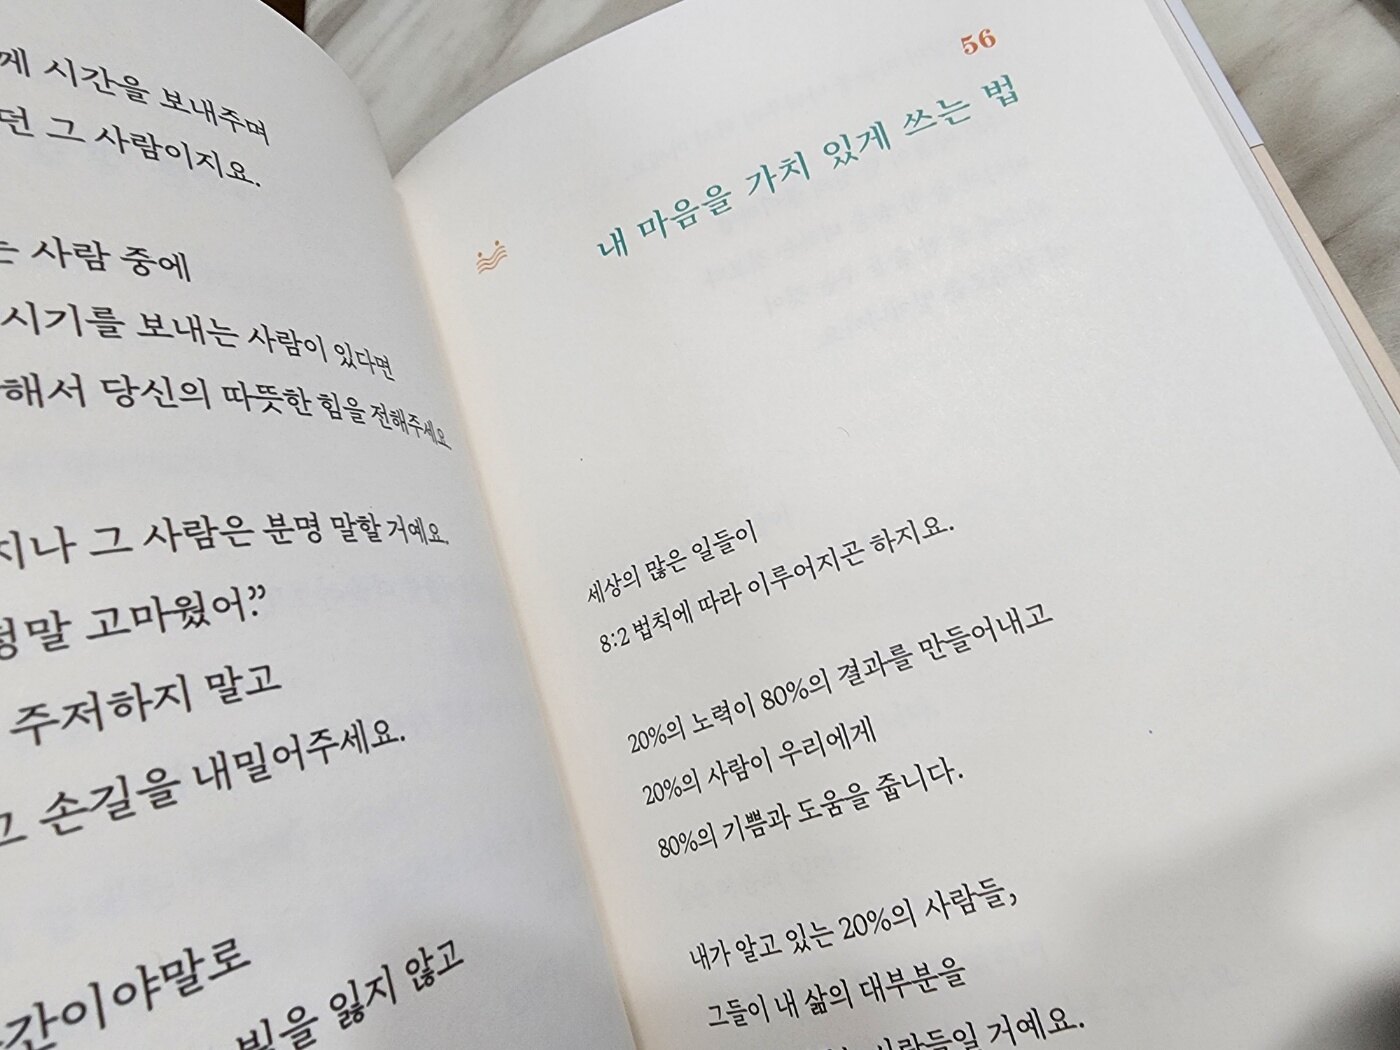 시간을 보내주며
그 사람이지요.
사람 중에
시기를 보내는 사람이 있다면
당신의 따뜻한 힘을 전해주세요.
그 사람은 분명 말할 거예요.
고마웠어.”
주저하지 말고
손길을 내밀어주세요.
잃지 않고
56
내 마음을 가치 있게 쓰는 법
세상의 많은 일들이
8:2 법칙에 따라 이루어지곤 하지요.
20%의 노력이 80%의 결과를 만들어내고
20%의 사람이 우리에게
80%의 기쁨과 도움을 줍니다.
내가 알고 있는 20%의 사람들,
그들이 내 삶의 대부분을
사람들일 거예요.